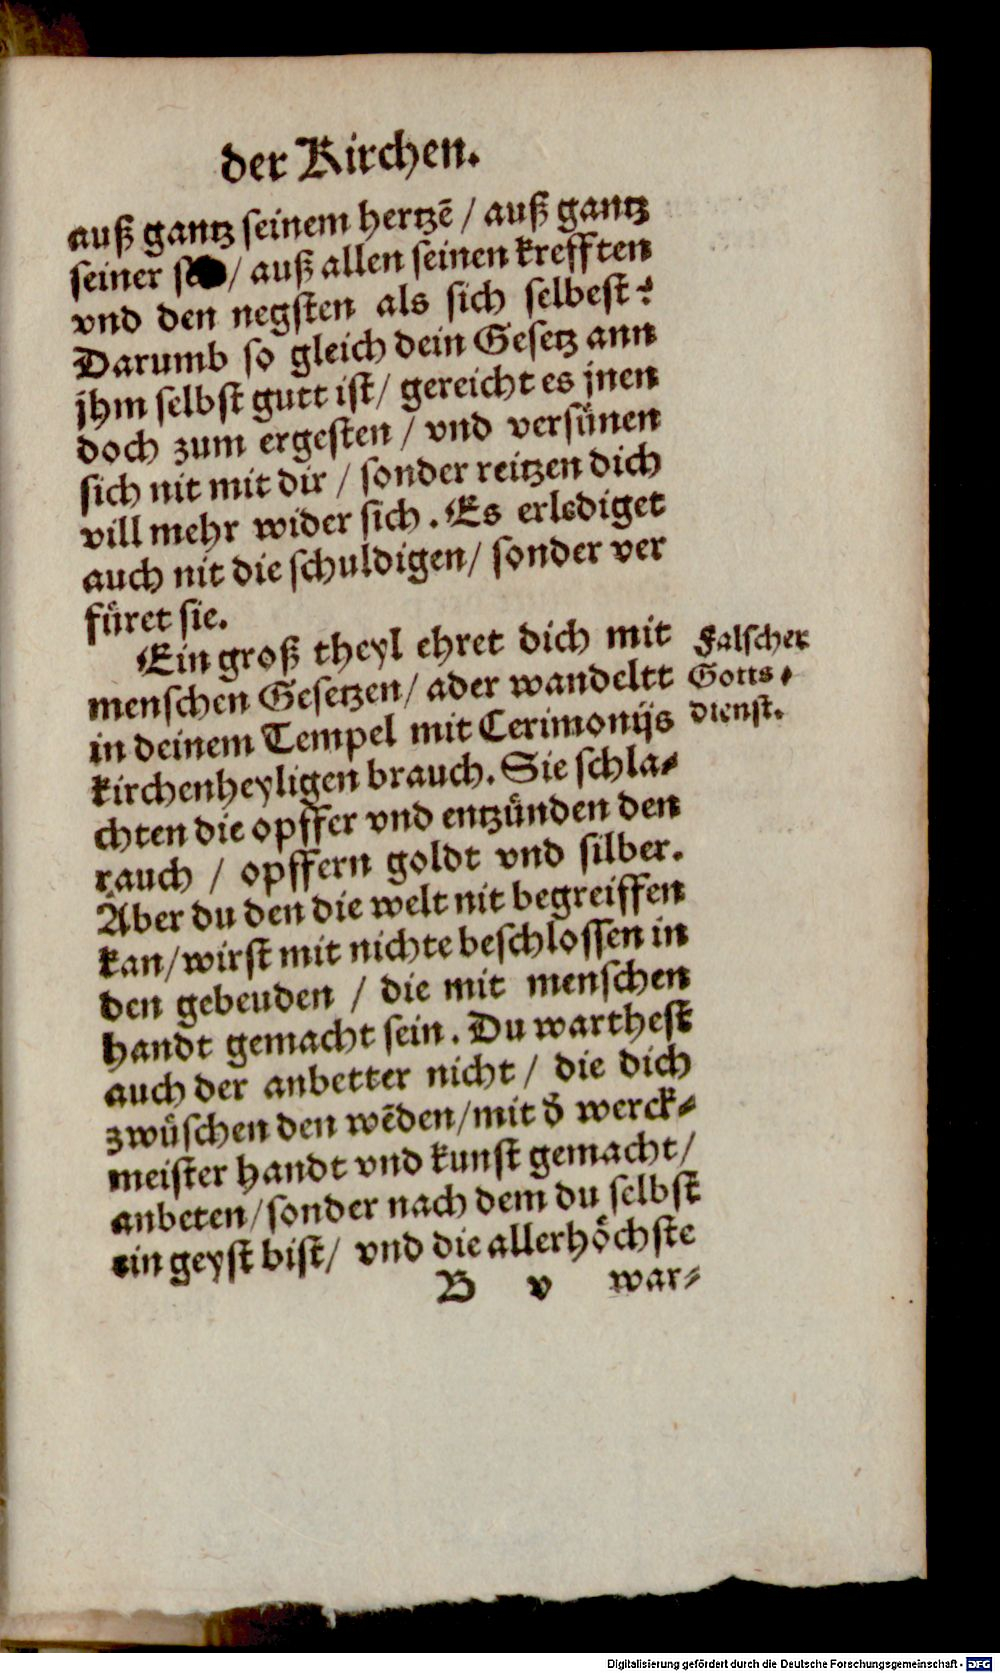 der Kirchen.
auß gantz seinem hertzē / auß gantz
seiner / auß allen seinen krefften
vnd den negsten als sich selbest?
Darumb so gleich dein Gesetz ann
jhm selbst gutt ist / gereicht es jnen
doch zum ergesten / vnd versünen
sich nit mit dir / sonder reitzen dich
vill mehr wider sich. Es erlediget
auch nit die schuldigen / sonder ver
füret sie.
Ein groß theyl ehret dich mit
menschen Gesetzen / ader wandeltt
in deinem Tempel mit Cerimonijs
kirchenheyligen brauch. Sie schla-
chten die opffer vnd entzünden den
rauch / opffern goldt vnd silber.
Aber du den die welt nit begreiffen
kan / wirst mit nichte beschlossen in
den gebeuden / die mit menschen
handt gemacht sein. Du warthest
auch der anbetter nicht / die dich
zwüschen den wēden / mit d̄ werck-
meister handt vnd kunst gemacht /
anbeten / sonder nach dem du selbst
ein geyst bist / vnd die allerhöchste
B v war-
Falscher
Gotts-
dienst.
Digitalisierung gefördert durch die Deutsche Forschungsgemeinschaft - DFG